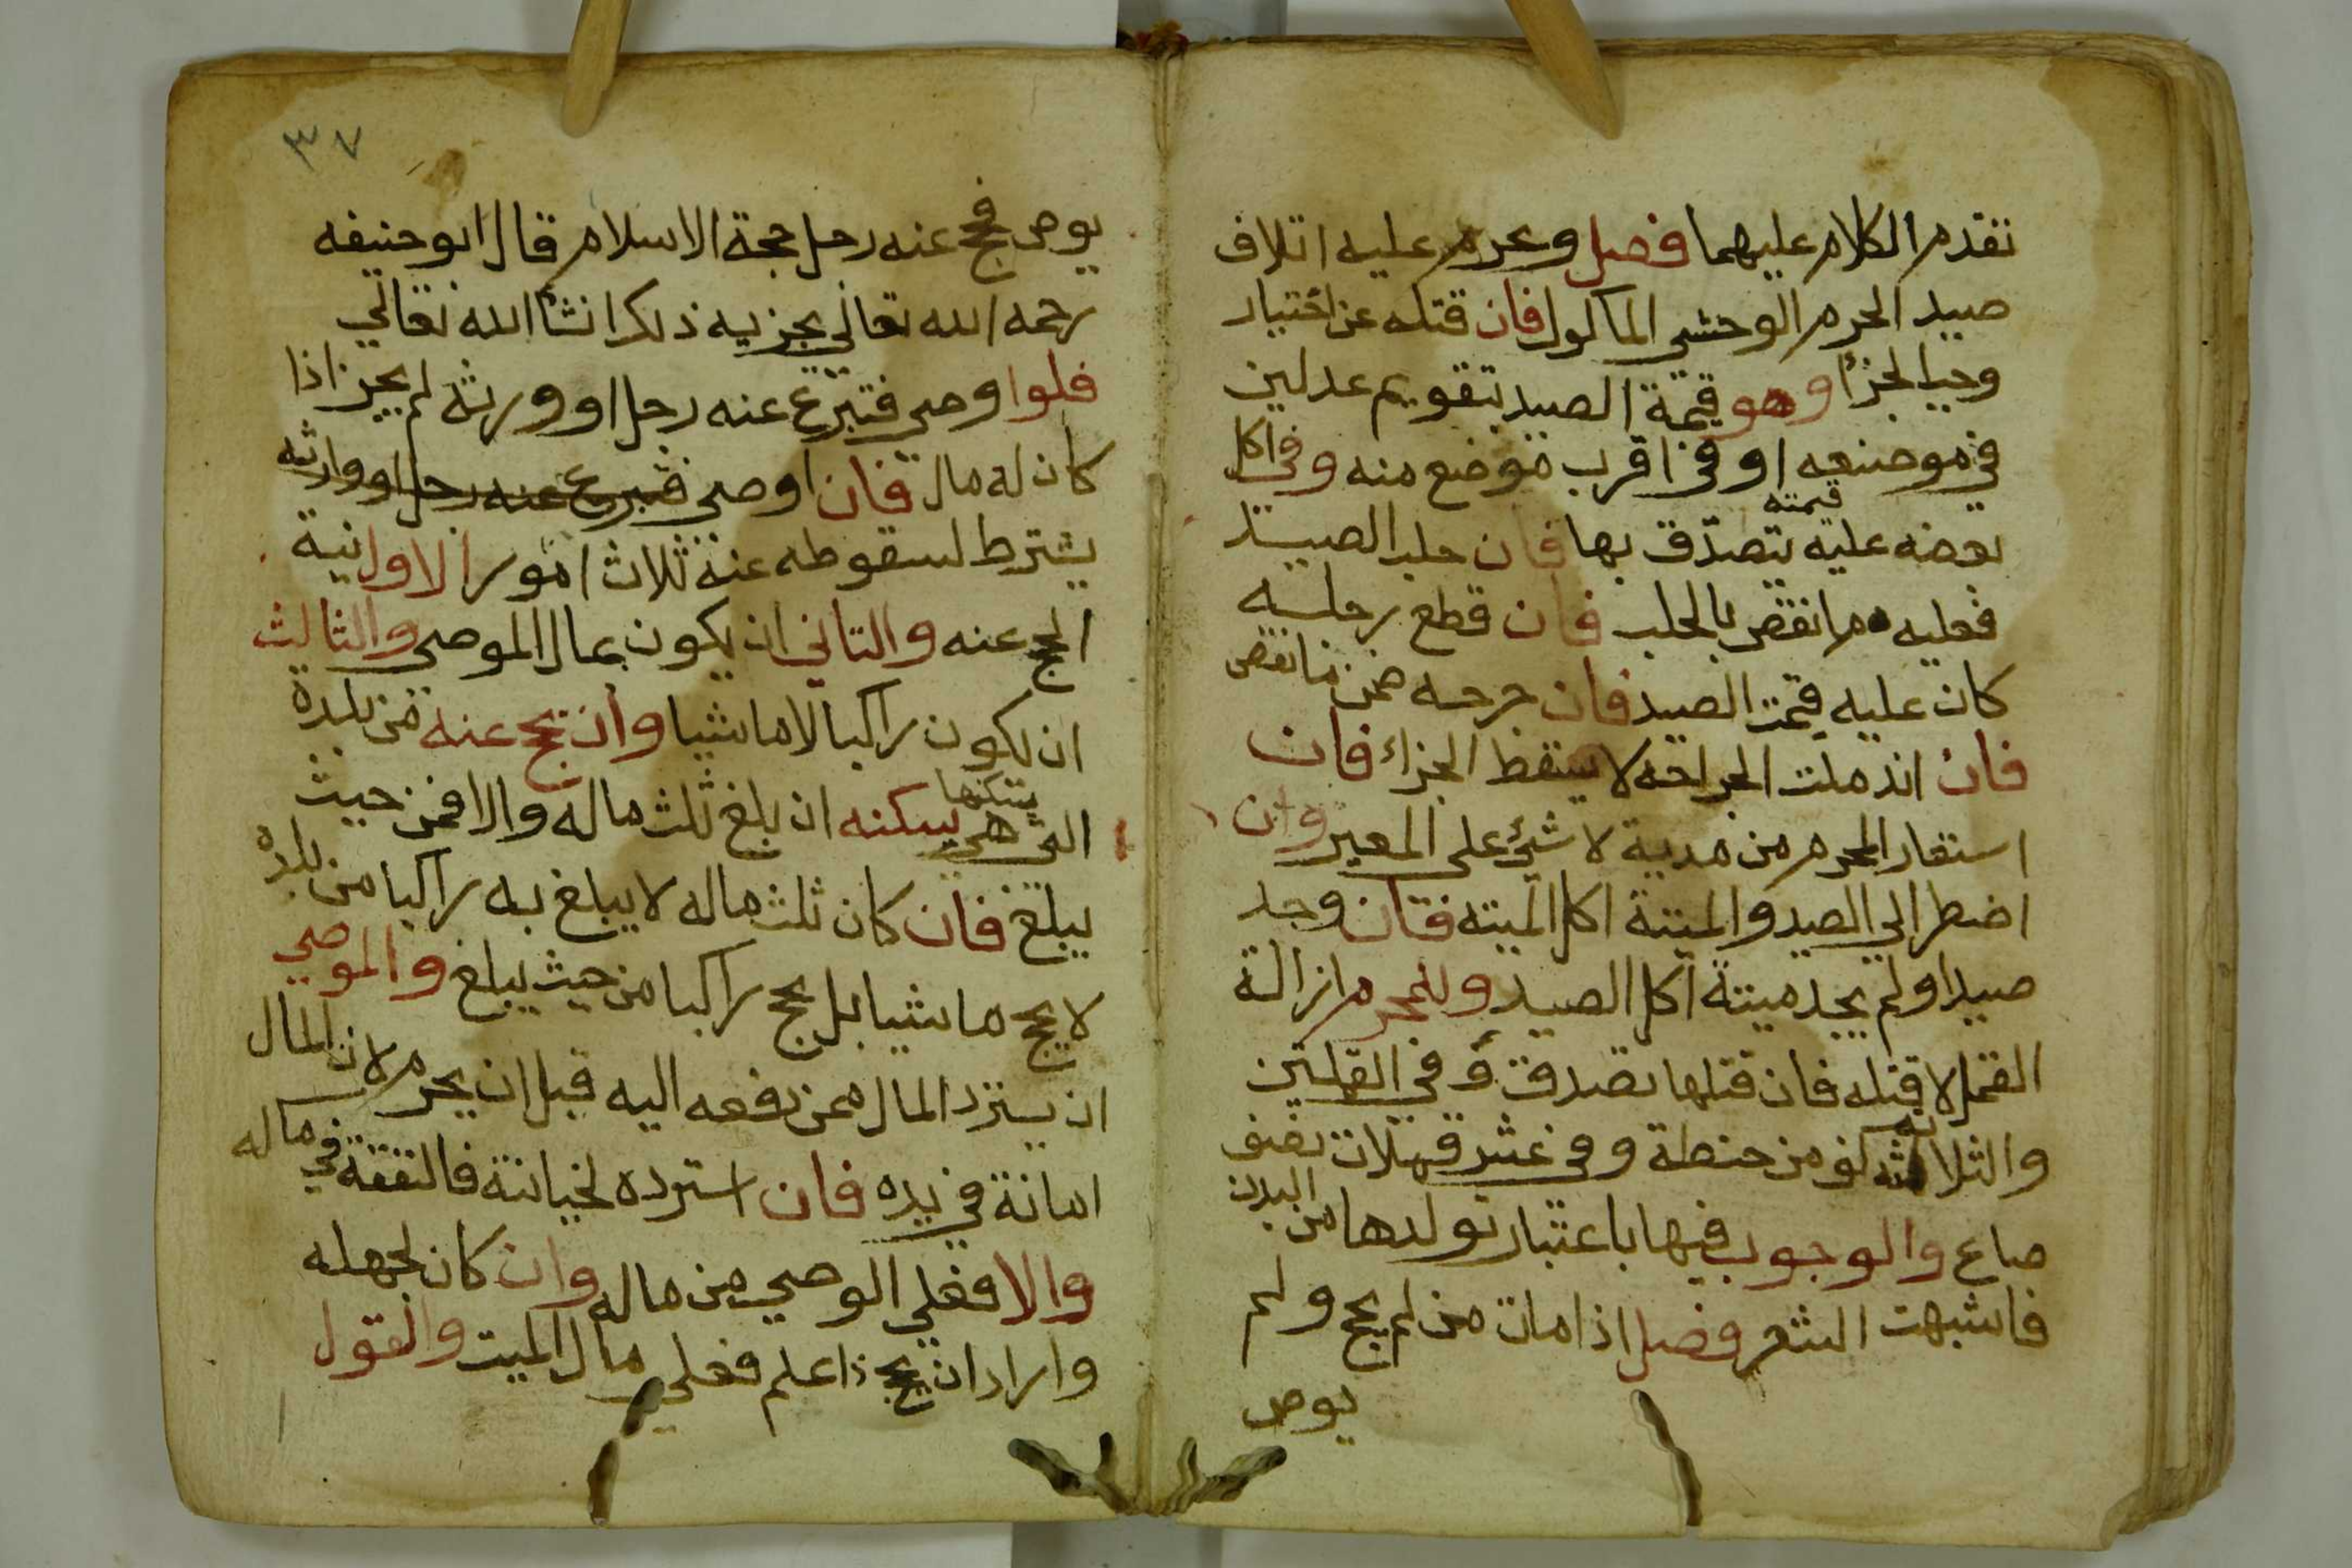 تقدم الكلام عليهما فصل ويحرم عليه اتلاف
صيد الحرم الوحشي الماكول فان قتله عن اختيار
وجب الجزأ وهو قيمة الصيد بتقويم عدلين
في موضعه او في اقرب موضع منه وفي اكل
بعضه عليه قيمته يتصدق بها فان حلب الصيد
فعليه ما نقص بالحلب فان قطع رجليه
كان عليه قيمت الصيد فان جرحه ضمن ما نقص
فان اندملت الجراحه لا يسقط الجزاء فان
استعار المحرم من مدية لا شئ على المعير وان
اضطر الي الصيد والميتة اكل الميته فان وجد
صيدا ولم يجد ميتة اكل الصيد وللمحرم ازالة
القمل لا قتله فان قتلها تصدق وفي القملتين
والثلاثه كف من حنطة وفي عشر قملات نصف
صاع والوجوب فيها باعتبار تولدها من البدن
فاشبهت الشعر فصل اذا مات من لم يحج ولم
يوص
٣٧
يوص فحج عنه رجل حجة الاسلام قال ابو حنيفه
رحمه الله تعالى يجزيه ذلك انشأ الله تعالي
فلو اوصى فتبرع عنه رجل او وورثه لم يجز اذا
كان له مال فان اوصى فتبرع عنه رجل او وارثه
يشترط لسقوطه عنه ثلاث امور الاول نية
الحج عنه والثاني ان يكون بمال الموصي والثالث
ان يكون راكبا لا ماشيا وان يحج عنه من بلدة
التي هي يسكنها يسكنه ان بلغ ثلث ماله والا فمن حيث
يبلغ فان كان ثلث ماله لا يبلغ به راكبا من بلده
لا يحج ماشيا بل يحج راكبا من حيث يبلغ والموصي
ان يسترد المال ممن دفعه اليه قبل ان يحرم لان المال
امانة في يده فان استرده لخيانة فالنفقة في ماله
والا فعلي الوصي من ماله وان كان لجهله
واراد ان يحج ذا علم فعلي مال الميت والقول